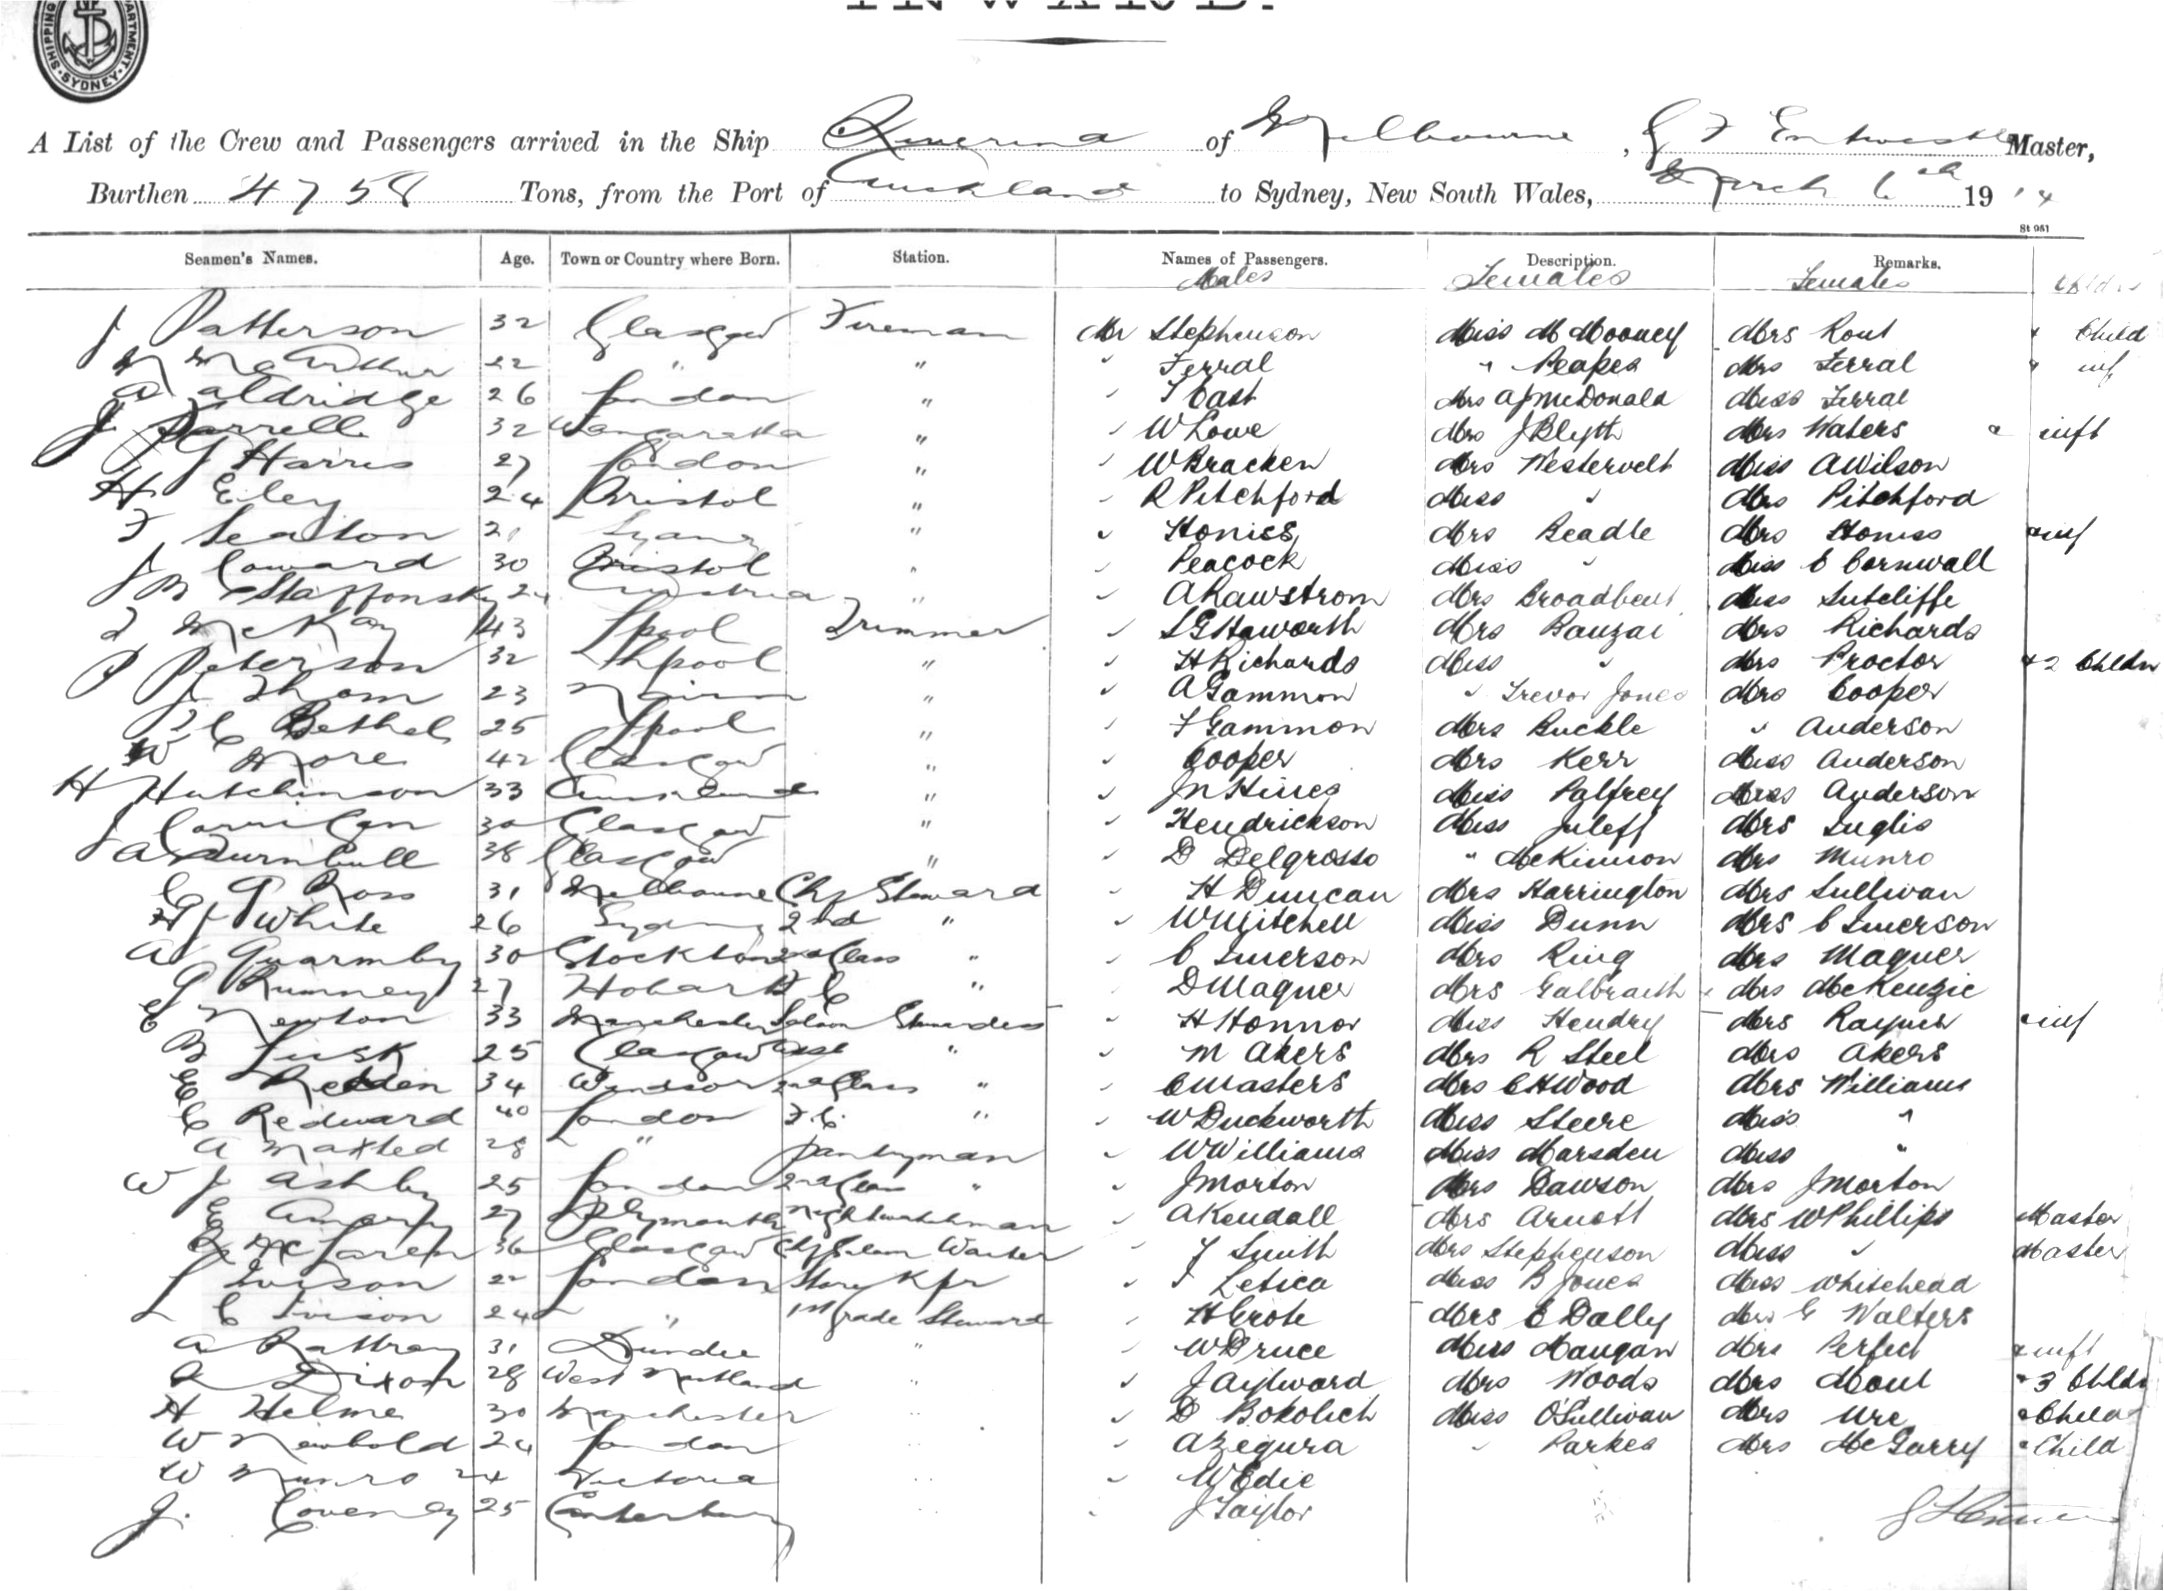 SHIPPING DEPARTMENT SYDNEY
INWARD.
A List of the Crew and Passengers arrived in the Ship Riverina of Melbourne, G F Entwistle Master,
Burthen 4758 Tons, from the Port of Auckland to Sydney, New South Wales, March 6th 1914
St 961
Seamen's Names. Age. Town or Country where Born. Station. Names of Passengers. Description. Remarks.
Males Females Females Childn
J Patterson 32 Glasgow Fireman Mr Stephenson Miss M Mooney Mrs Rout & Child
McArthur 22 " " " Ferral " Peapes Mrs Ferral & inf
A Aldridge 26 London " " T Cast Mrs A J McDonald Miss Ferral
J Farrell 32 Wangaratta " " W Lowe Mrs J Blyth Mrs Waters & inft
J Harris 27 London " " W Bracken Mrs Westervelt Miss A Wilson
H Eiley 24 Bristol " " R Pitchford Miss " Mrs Pitchford
F Seaton 21 " " Honiss Mrs Beadle Mrs Honiss & inf
J Coward 30 Bristol " " Peacock Miss " Miss C Cornwall
24 Austria " " A Rawstrom Mrs Broadbent Miss Sutcliffe
McKay 43 Lpool Trimmer " L G Haworth Mrs Banzai Mrs Richards
P Peterson 32 Lhpool " " H Richards Miss " Mrs Proctor & 2 Childn
J Thom 23 Nairn " " A Gammon " Trevor Jones Mrs Cooper
C Bethel 25 Lpool " " F Gammon Mrs Buckle " Anderson
W More 42 Glasgow " " Cooper Mrs Kerr Miss Anderson
H Hutchinson 33 " " J N Hines Miss Palfrey Miss Anderson
J Corrigan 30 Glasgow " " Hendrickson Miss Juleff Mrs Inglis
A Turnbull 38 Glasgow " " D Delgrosso " McKinnon Mrs Munro
C G Ross 31 Melbourne Chf Steward " H Duncan Mrs Harrington Mrs Sullivan
H J White 26 Sydney 2nd " " W Mitchell Miss Dunn Mrs C Imerson
A Quarmby 30 Stockton 2nd Class " " C Imerson Mrs Ring Mrs Magner
G Rumney 27 Hobart F C " " D Magner Mrs Galbraith Mrs McKenzie
C Newton 33 Manchester Saloon Stewardess " H Honnor Miss Hendry Mrs Rayner & inf
B Lusk 25 Glasgow Asst " " M Akers Mrs R Steel Mrs Akers
E Redden 34 Windsor 2nd Class " " C Masters Mrs C H Wood Mrs Williams
C Redward 40 London F.C. " " W Duckworth Miss Steere Miss "
A Maxted 28 " Pantryman " W Williams Miss Marsden Miss "
W J Ashby 25 London 2nd Class " " J Morton Mrs Dawson Mrs J Morton
E Amery 27 Plymouth Nightwatchman " A Kendall Mrs Arnott Mrs W Phillips Master
McLaren 36 Glasgow Chf Saloon Waiter " F Smith Mrs Stephenson Miss " Master
L Ivison 22 London Store Kpr " Letica Miss B Jones Miss Whitehead
L C Ivison 24 " 1st Grade Steward " H Grote Mrs C Dally Mrs G Walters
A Rattray 31 Dundee " " W Druce Miss Mangan Mrs Perfect & inft
A Dixon 28 West Maitland " " J Aylward Mrs Woods Mrs Moul & 3 Childn
H Helme 30 Manchester " " D Bokolich Miss O'Sullivan Mrs Ure & Child
W Newbold 24 London " " A Zegura " Parkes Mrs McGarry & Child
W Munro 24 Victoria " " W Edie
J. Coveney 25 Canterbury " " J Taylor